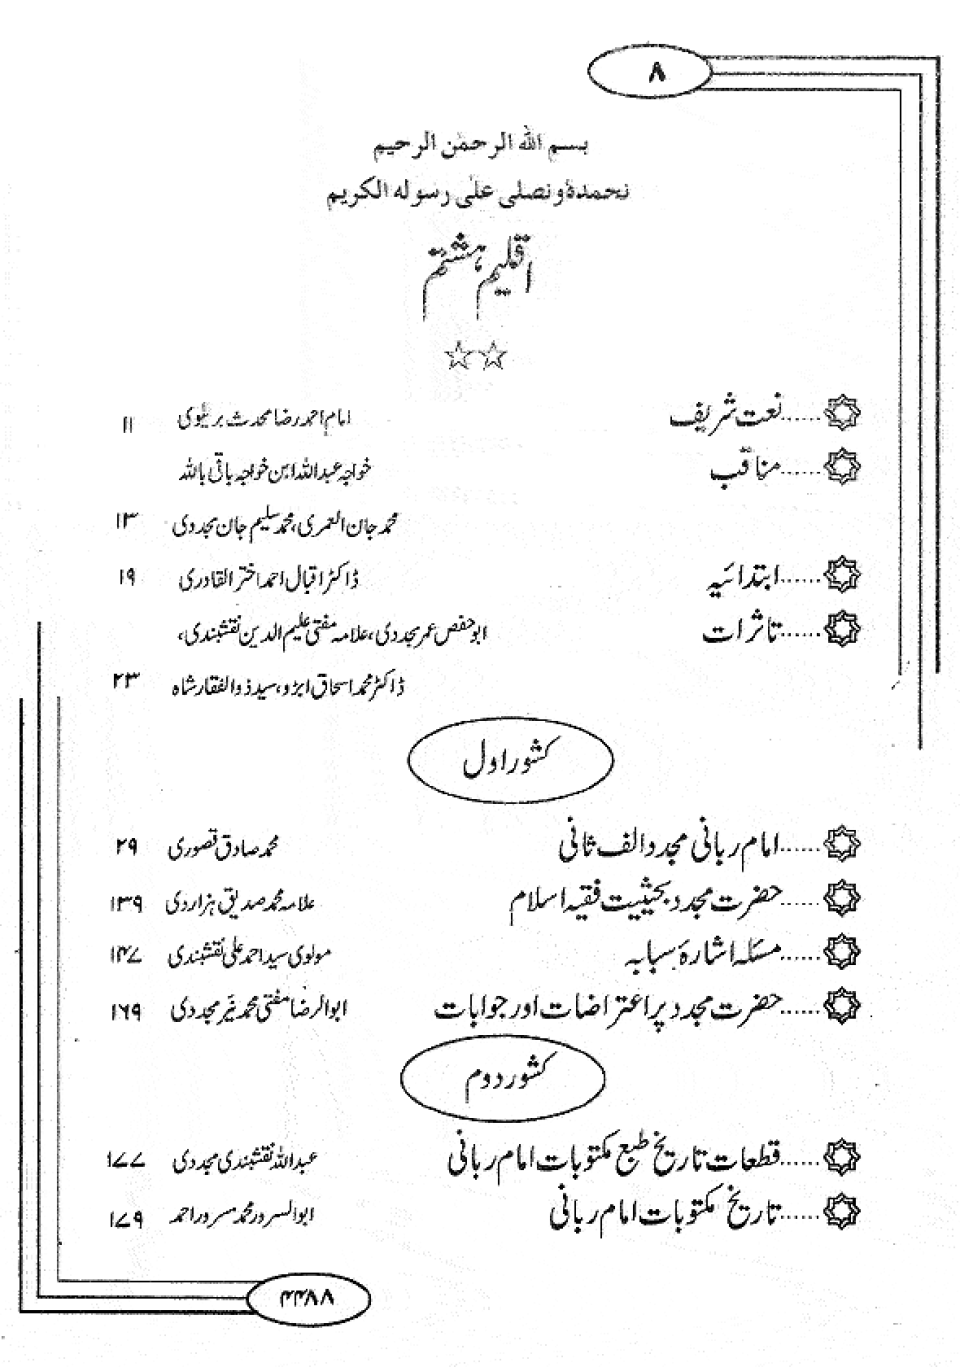 ۸
بسم الله الرحمٰن الرحيم
نحمدهٗ ونصلى علىٰ رسوله الكريم
اقلیم ہشتم
☆☆
نعت شریف...... امام احمد رضا محدث بریلوی ۱۱
مناقب...... خواجہ عبداللہ ابن خواجہ باقی باللہ
محمد جان العمری، محمد سلیم جان مجددی ۱۳
ابتدائیہ...... ڈاکٹر اقبال احمد اختر القادری ۱۹
تاثرات...... ابو حفص عمر مجددی، علامہ مفتی علیم الدین نقشبندی،
ڈاکٹر محمد اسحاق ابڑو، سید ذوالفقار شاہ ۲۳
کشور اول
امام ربانی مجدد الف ثانی...... محمد صادق قصوری ۲۹
حضرت مجدد بحیثیت فقیہ اسلام...... علامہ محمد صدیق ہزاروی ۱۳۹
مسئلہ اشارۂ سبابہ...... مولوی سید احمد علی نقشبندی ۱۴۷
حضرت مجدد پر اعتراضات اور جوابات...... ابوالرضا مفتی محمد نیّر مجددی ۱۶۹
کشور دوم
قطعات تاریخ طبع مکتوبات امام ربانی...... عبداللہ نقشبندی مجددی ۱۷۷
تاریخ مکتوبات امام ربانی...... ابوالسرور محمد مسرور احمد ۱۷۹
۴۴۸۸